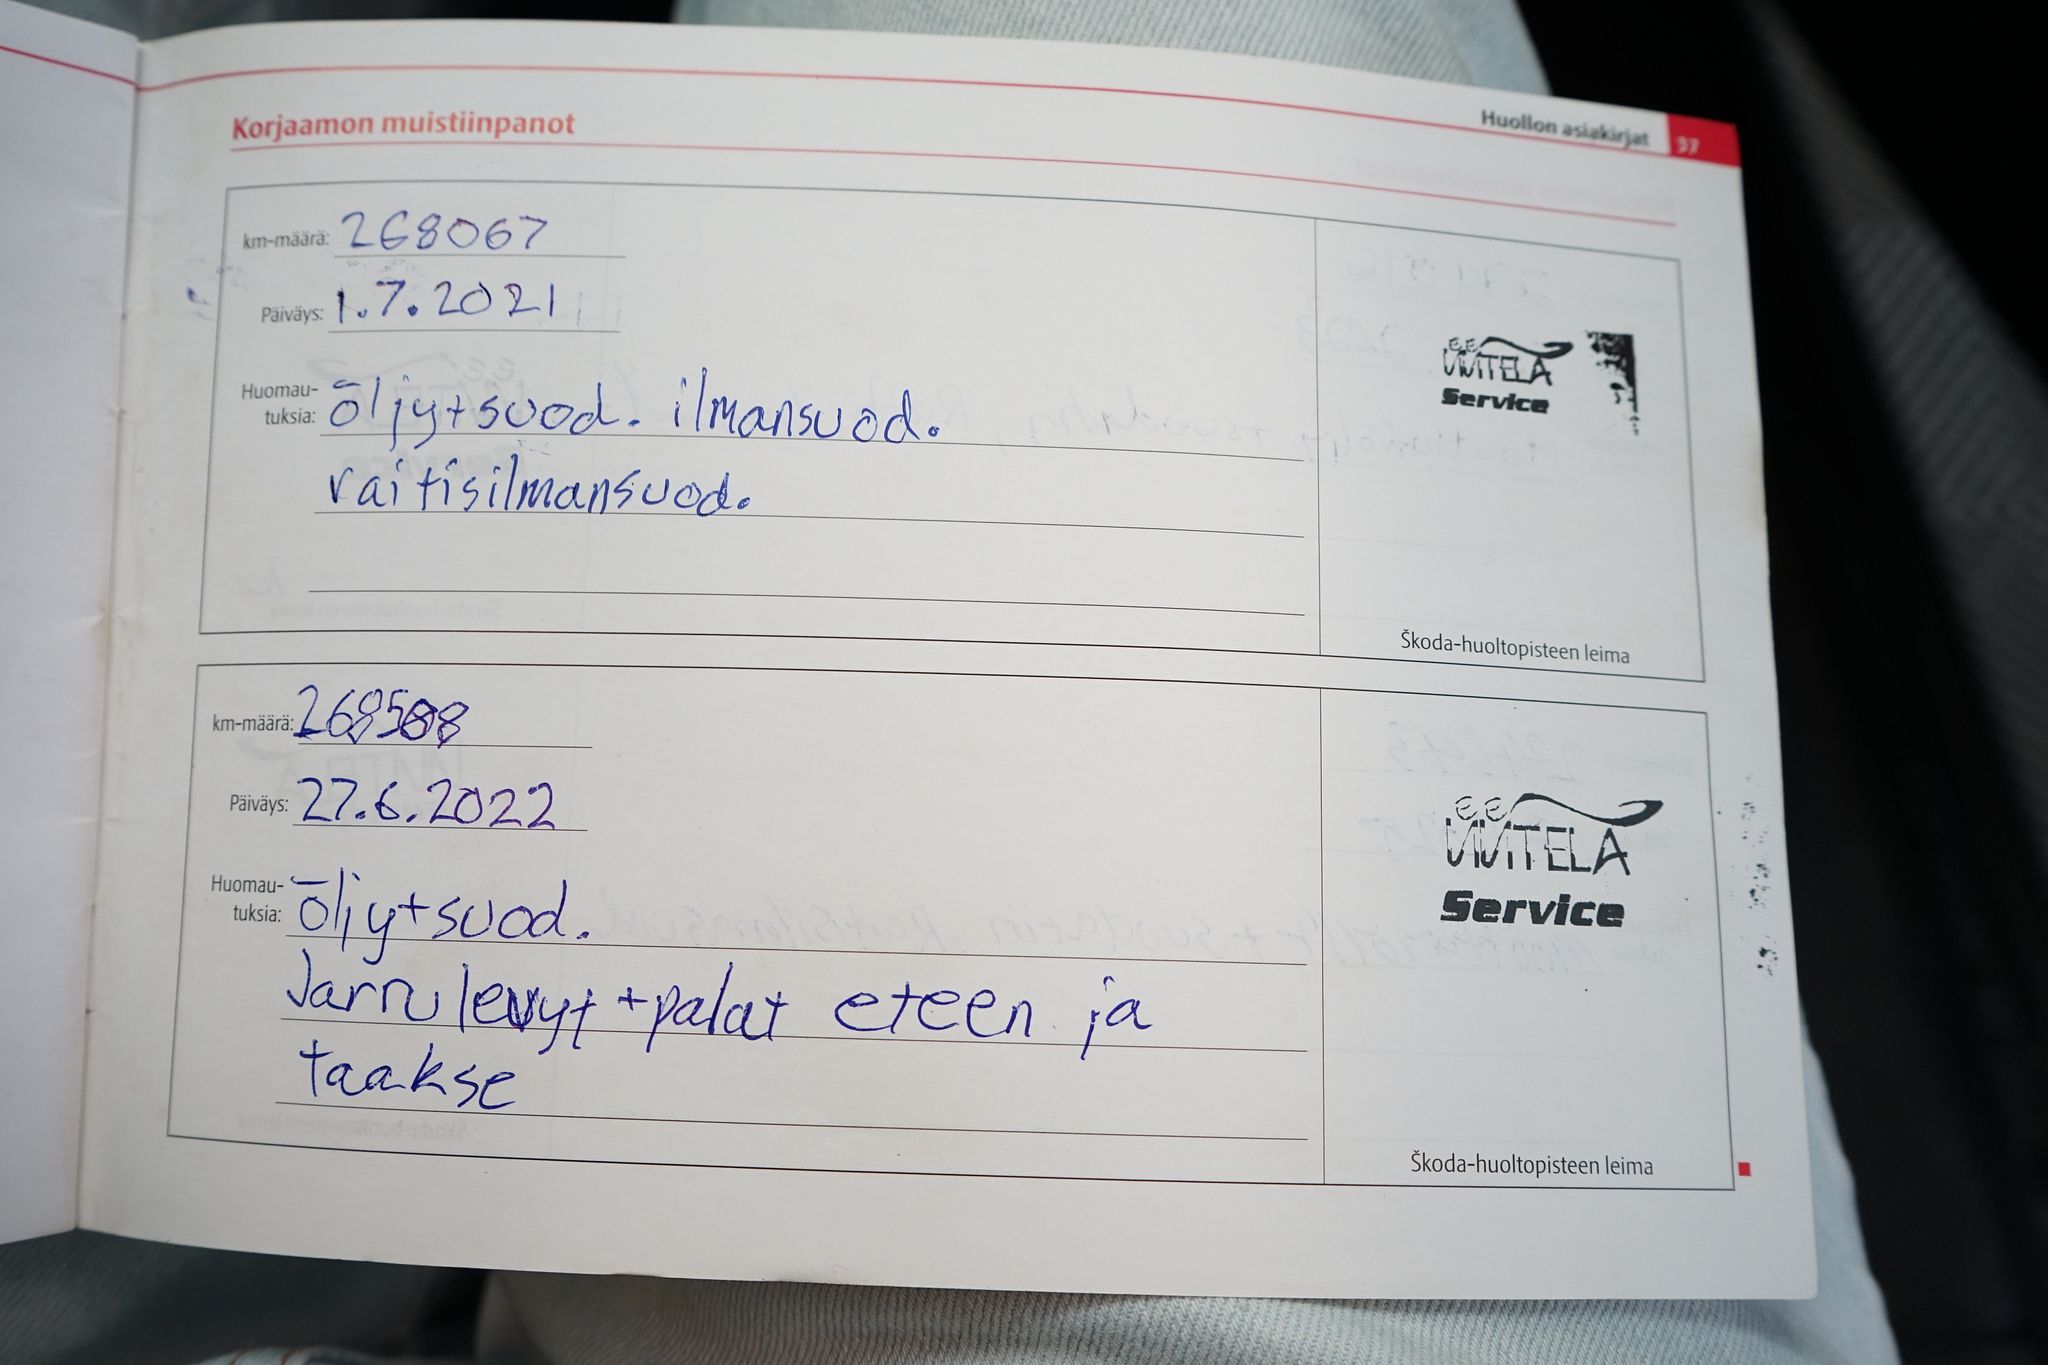 Korjaamon muistiinpanot
Huollon asiakirjat 37
km-määrä: 268067
Päiväys: 1.7.2021
Huomau-
tuksia: öljy+suod. ilmansuod.
raitisilmansuod.
Service
Škoda-huoltopisteen leima
km-määrä:
Päiväys: 27.6.2022
Huomau-
tuksia: öljy+suod.
Jarrulevyt+palat eteen ja
taakse
Service
Škoda-huoltopisteen leima